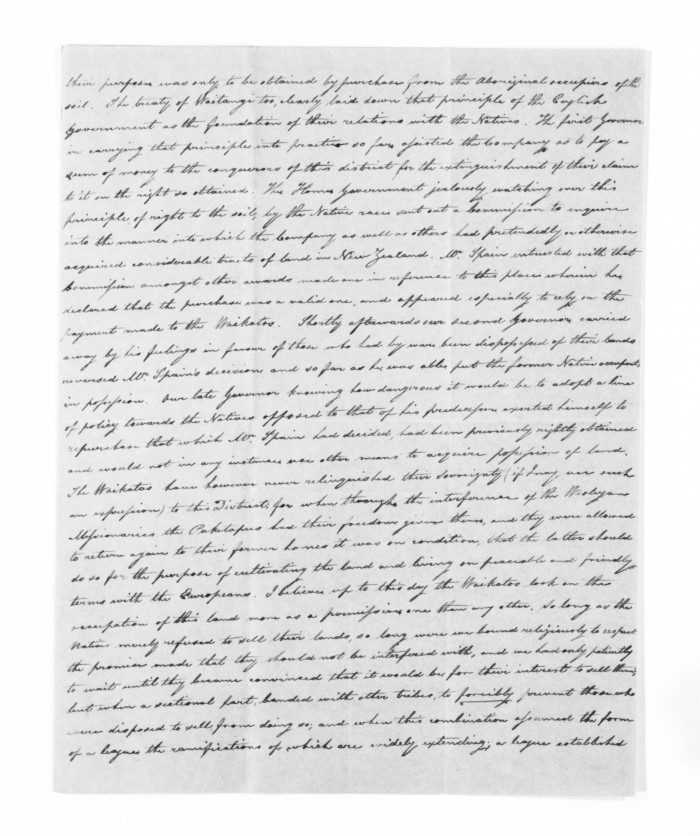 their purposes was only to be obtained by purchase from the Aboriginal occupiers of the
soil. The treaty of Waitangi too, clearly laid down that principle of the English
Government as the foundation of their relations with the Natives. The first Governor
in carrying that principle into practice so far assisted the Company as to pay a
sum of money to the conquerors of this district for the extinguishment of their claim
to it on the right so obtained. The Home Government jealously watching over this
principle of right to the soil, by the Native race sent out a Commission to enquire
into the manner into which the Company as well as others had pretendedly or otherwise
acquired considerable tracts of land in New Zealand. Mr. Spain intrusted with that
Commission amongst other awards made one in reference to this place wherein he
declared that the purchase was a valid one, and appeared especially to rely on the
payment made to the Waikatos. Shortly afterwards our second Governor carried
away by his feelings in favour of those who had by war been dispossessed of their lands
reversed Mr. Spain's decision and so far as he was able, put the former Native occupants
in possession. Our late Governor knowing how dangerous it would be to adopt a line
of policy towards the Natives opposed to that of his predecessor exerted himself to
repurchase that which Mr. Spain had decided, had been previously rightly obtained
and would not in any instance use other means to acquire possession of land.
The Waikatos have however never relinquished their sovereignty (if I may use such
an expression) to this District, for when through the interference of the Wesleyan
Missionaries the Puketapus had their freedom given them, and they were allowed
to return again to their former homes it was on condition, that the latter should
do so for the purpose of cultivating the land and living on peaceable and friendly
terms with the Europeans. I believe up to this day the Waikatos look on the
occupation of this land more as a permissive one than any other. So long as the
Natives merely refused to sell their lands, so long were we bound religiously to respect
the promise made that they should not be interfered with, and we had only patiently
to wait until they became convinced that it would be for their interest to sell them;
but when a sectional part, banded with other tribes, to forcibly prevent those who
were disposed to sell from doing so; and when this combination assumed the form
of a league the ramifications of which are widely extending; a league established